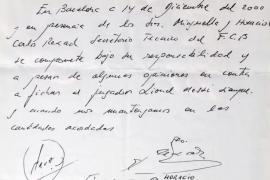 En Barcelona a 14 de Diciembre del 2000
y en presencia de los Srs. Minguella y Horacio
Carlo Rexach Secretario Técnico del F.C.B
se compromete bajo su responsabilidad y
a pesar de algunas opiniones en contra
a fichar al jugador Lionel Messi siempre
y cuando nos mantengamos en las
cantidades acordadas
HORACIO